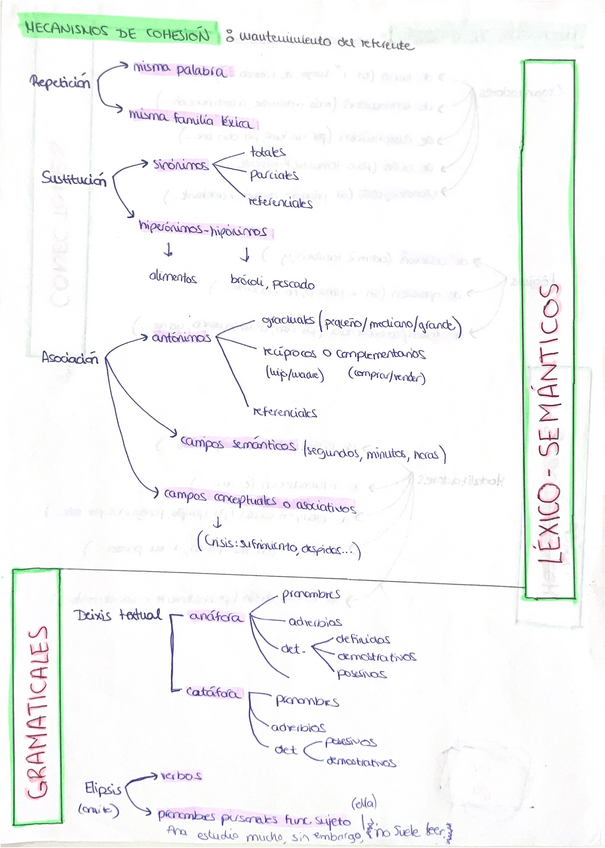 MECANISMOS DE COHESIÓN : mantenimiento del referente
Repetición
misma palabra
misma familia léxica
Sustitución
sinónimos
totales
parciales
referenciales
hiperónimos-hipónimos
alimentos
brócoli, pescado
Asociación
antónimos
graduales (pequeño/mediano/grande)
recíprocos o complementarios
(hijo/madre) (comprar/vender)
referenciales
campos semánticos (segundos, minutos, horas)
campos conceptuales o asociativos
(Crisis: sufrimiento, despidos...)
LÉXICO - SEMÁNTICOS
GRAMATICALES
Deixis textual
anáfora
pronombres
adverbios
det.
definidos
demostrativos
posesivos
catáfora
pronombres
adverbios
det
posesivos
demostrativos
Elipsis
(omite)
verbos
pronombres personales func. sujeto
(ella)
Ana estudia mucho, sin embargo, {no suele leer.}